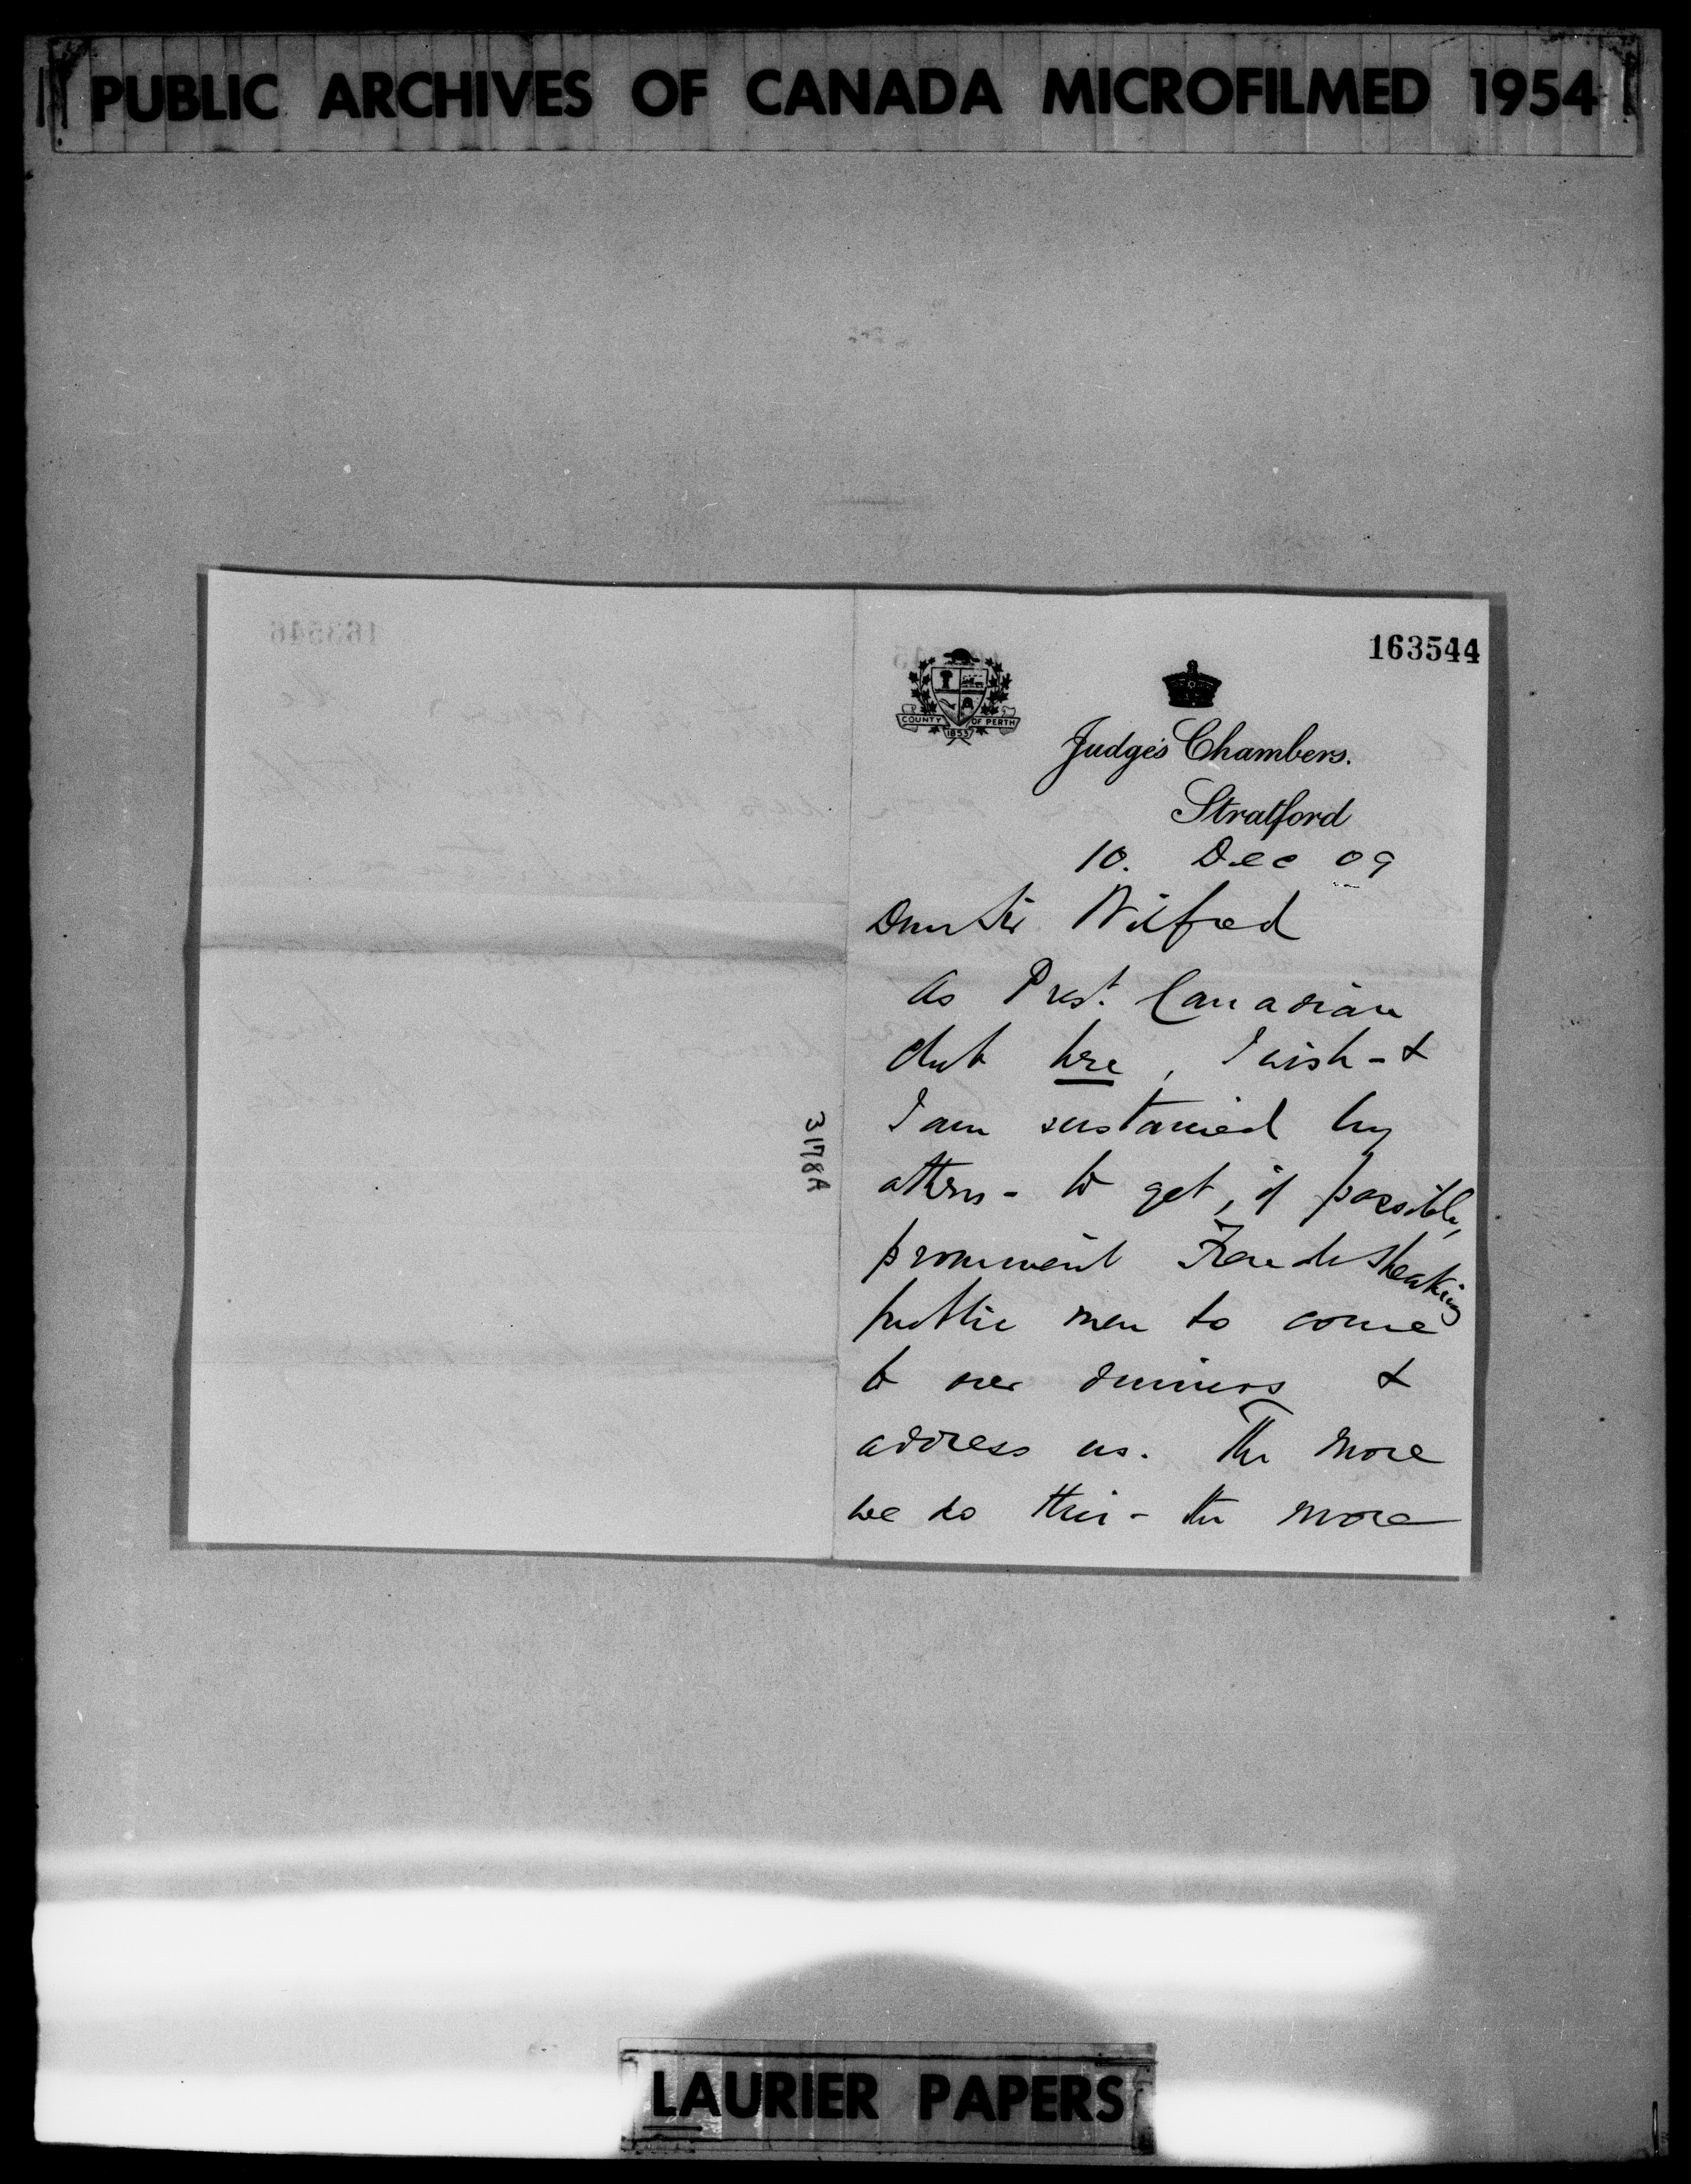 PUBLIC ARCHIVES OF CANADA MICROFILMED 1954
163544
COUNTY OF PERTH
1853
Judge's Chambers.
Stratford
10. Dec 09
Dear Sir Wilfred
As Prest. Canadian
Club here, I wish - &
I am sustained by
others - to get, if possible,
prominent French speaking
public men to come
to our dinners &
address us. The more
we do this - the more
3178A
LAURIER PAPERS